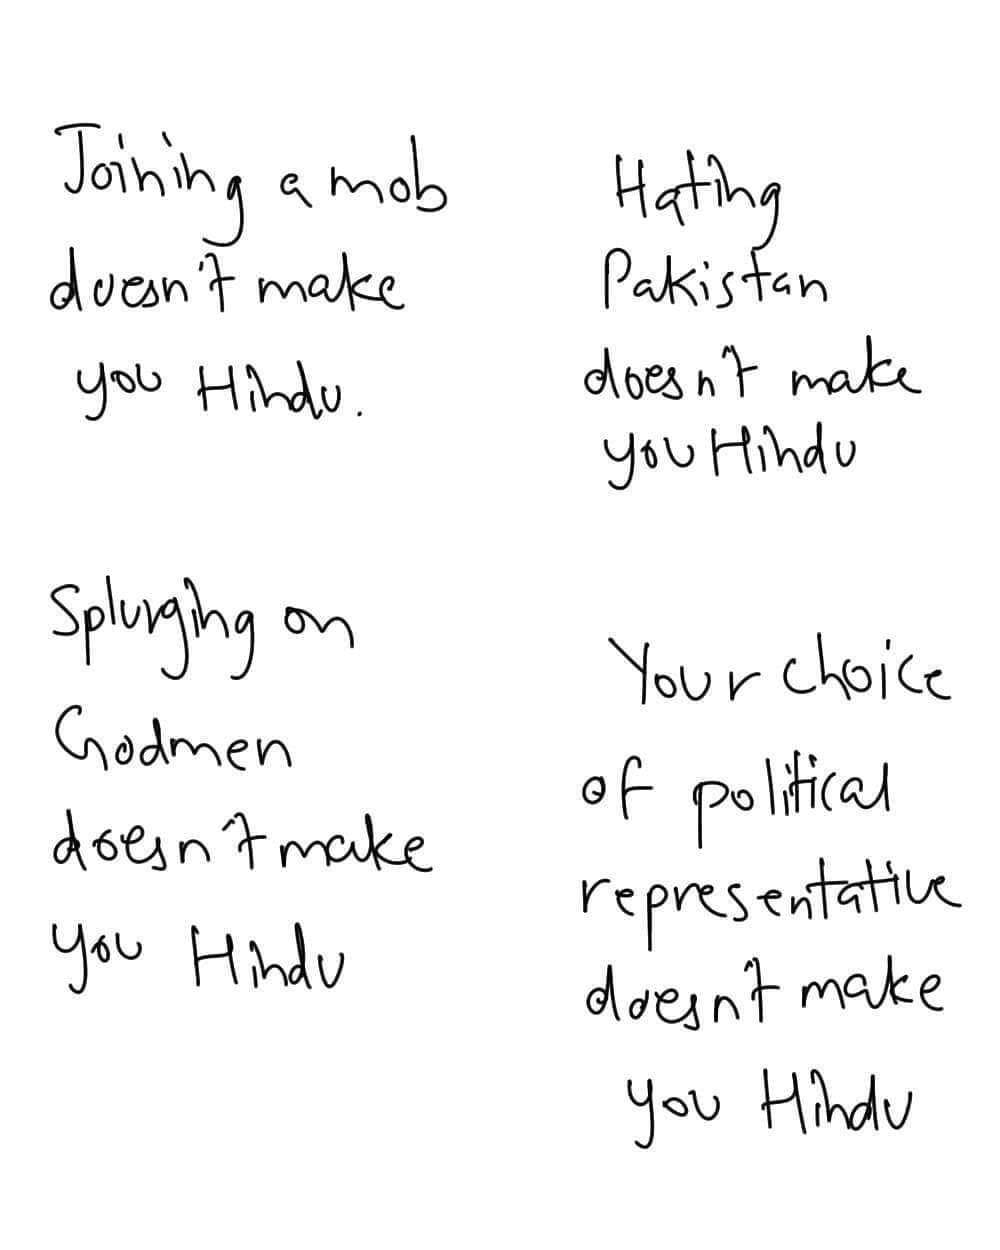 Joining a mob
doesn't make
you Hindu.
Hating
Pakistan
doesn't make
you Hindu
Splurging on
Godmen
doesn't make
you Hindu
Your choice
of political
representative
doesn't make
you Hindu